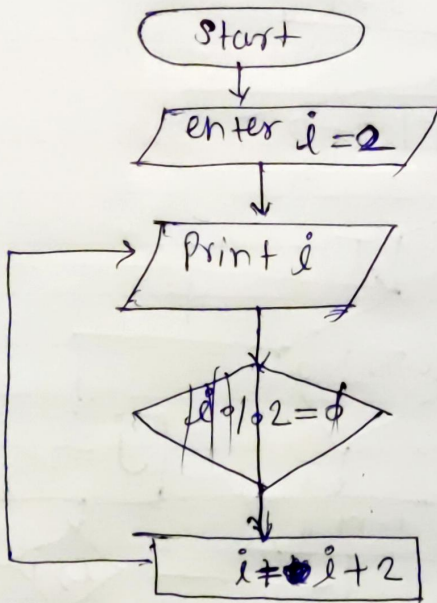 Start
enter i = 2
Print i
i % 2 = 0
i = i + 2